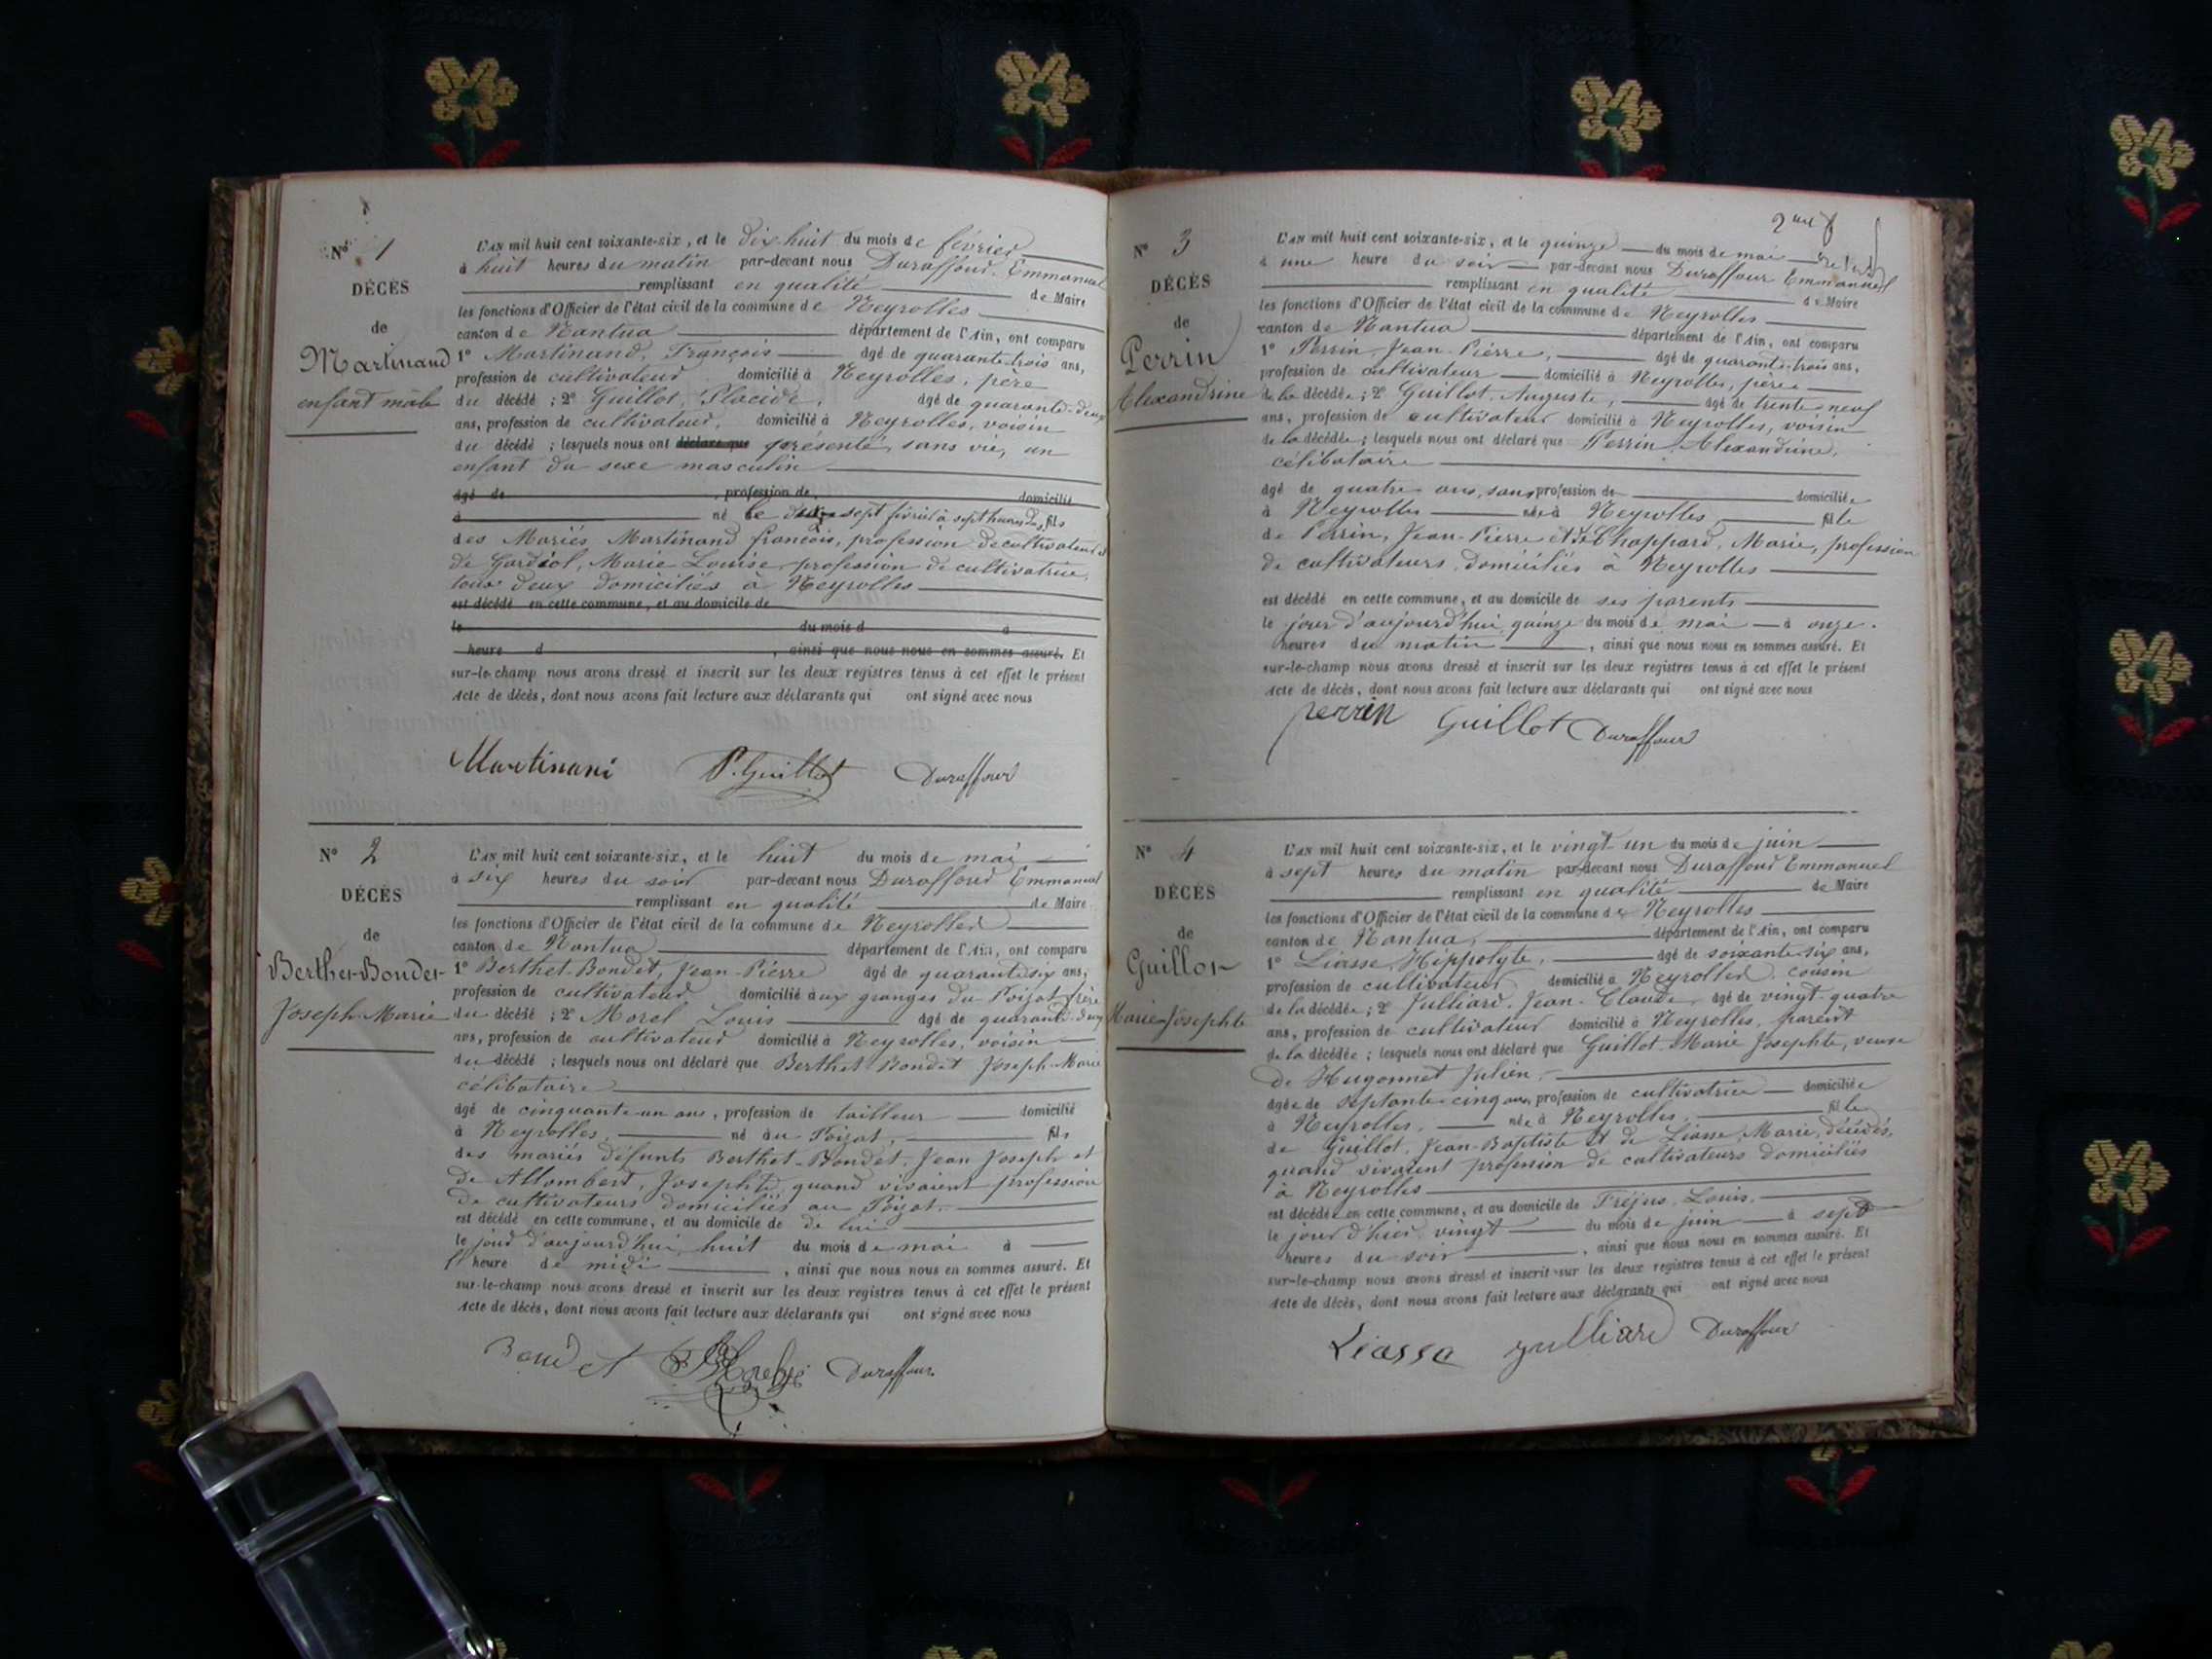 N° 1
DÉCÈS
de
Martinand
enfant mâle
L'AN mil huit cent soixante-six, et le dix huit du mois de février
à huit heures du matin par-devant nous Duraffour Emmanuel
remplissant en qualité de Maire
les fonctions d'Officier de l'état civil de la commune de Neyrolles
canton de Nantua département de l'Ain, ont comparu
1° Martinand, François âgé de quarante-trois ans,
profession de cultivateur domicilié à Neyrolles, père
du décédé ; 2° Guillot, Placide, âgé de quarante-deux
ans, profession de cultivateur, domicilié à Neyrolles, voisin
du décédé ; lesquels nous ont déclaré que présenté, sans vie, un
enfant du sexe masculin
âgé de , profession de domicilié
à né le sept février à sept heures du fils
des Mariés Martinand françois, profession de cultivateur et
de Gardiol, Marie Louise, profession de cultivatrice,
tous deux domiciliés à Neyrolles
est décédé en cette commune, et au domicile de
le du mois d à
heure d , ainsi que nous nous en sommes assuré. Et
sur-le-champ nous avons dressé et inscrit sur les deux registres tenus à cet effet le présent
Acte de décès, dont nous avons fait lecture aux déclarants qui ont signé avec nous
Martinand P. Guillot Duraffour
N° 2
DÉCÈS
de
Berthet-Bondet
Joseph-Marie
L'AN mil huit cent soixante-six, et le huit du mois de mai,
à six heures du soir par-devant nous Duraffour Emmanuel
remplissant en qualité de Maire
les fonctions d'Officier de l'état civil de la commune de Neyrolles
canton de Nantua département de l'Ain, ont comparu
1° Berthet-Bondet, Jean-Pierre âgé de quarante six ans,
profession de cultivateur domicilié aux granges du Poizat, frère
du décédé ; 2° Morel Louis âgé de quarante-deux
ans, profession de cultivateur domicilié à Neyrolles, voisin
du décédé ; lesquels nous ont déclaré que Berthet Bondet Joseph-Marie
célibataire
âgé de cinquante-un ans, profession de tailleur domicilié
à Neyrolles, né au Poizat, fils
des mariés défunts Berthet-Bondet, Jean Joseph et
de Allombert, Josephte, quand vivaient profession
de cultivateurs domiciliés au Poizat.
est décédé en cette commune, et au domicile de de lui
le jour d'aujourd'hui huit du mois de mai à
l'heure de midi , ainsi que nous nous en sommes assuré. Et
sur-le-champ nous avons dressé et inscrit sur les deux registres tenus à cet effet le présent
Acte de décès, dont nous avons fait lecture aux déclarants qui ont signé avec nous
Bondet Morel Duraffour
2me f
N° 3
DÉCÈS
de
Perrin
Alexandrine
L'AN mil huit cent soixante-six, et le quinze du mois de mai
à une heure du soir par-devant nous Duraffour Emmanuel
remplissant en qualité de Maire
les fonctions d'Officier de l'état civil de la commune de Neyrolles
canton de Nantua département de l'Ain, ont comparu
1° Perrin, Jean-Pierre, âgé de quarante-trois ans,
profession de cultivateur domicilié à Neyrolles, père
de la décédée ; 2° Guillot, Auguste, âgé de trente neuf
ans, profession de cultivateur domicilié à Neyrolles, voisin
de la décédée ; lesquels nous ont déclaré que Perrin, Alexandrine,
célibataire
âgé de quatre ans, sans profession de domiciliée
à Neyrolles née à Neyrolles, fille
de Perrin, Jean-Pierre et de Chappard, Marie, profession
de cultivateurs, domiciliés à Neyrolles
est décédé en cette commune, et au domicile de ses parents
le jour d'aujourd'hui quinze du mois de mai à onze
heures du matin , ainsi que nous nous en sommes assuré. Et
sur-le-champ nous avons dressé et inscrit sur les deux registres tenus à cet effet le présent
Acte de décès, dont nous avons fait lecture aux déclarants qui ont signé avec nous
perrin Guillot Duraffour
N° 4
DÉCÈS
de
Guillot
Marie-Josephte
L'AN mil huit cent soixante-six, et le vingt-un du mois de juin
à sept heures du matin par-devant nous Duraffour Emmanuel
remplissant en qualité de Maire
les fonctions d'Officier de l'état civil de la commune de Neyrolles
canton de Nantua, département de l'Ain, ont comparu
1° Liasse, Hippolyte, âgé de soixante-six ans,
profession de cultivateur domicilié à Neyrolles, cousin
de la décédée ; 2° Julliard, Jean-Claude, âgé de vingt-quatre
ans, profession de cultivateur domicilié à Neyrolles, parent
de la décédée ; lesquels nous ont déclaré que Guillot Marie Josephte, veuve
de Hugonnet Julien,
âgée de septante-cinq ans, profession de cultivatrice domiciliée
à Neyrolles, née à Neyrolles, fille
de Guillot, Jean-Baptiste et de Liasse, Marie, décédés,
quand vivaient profession de cultivateurs domiciliés
à Neyrolles
est décédée en cette commune, et au domicile de Fréjus, Louis,
le jour d'hier vingt du mois de juin à sept
heures du soir , ainsi que nous nous en sommes assuré. Et
sur-le-champ nous avons dressé et inscrit sur les deux registres tenus à cet effet le présent
Acte de décès, dont nous avons fait lecture aux déclarants qui ont signé avec nous
Liasse julliard Duraffour